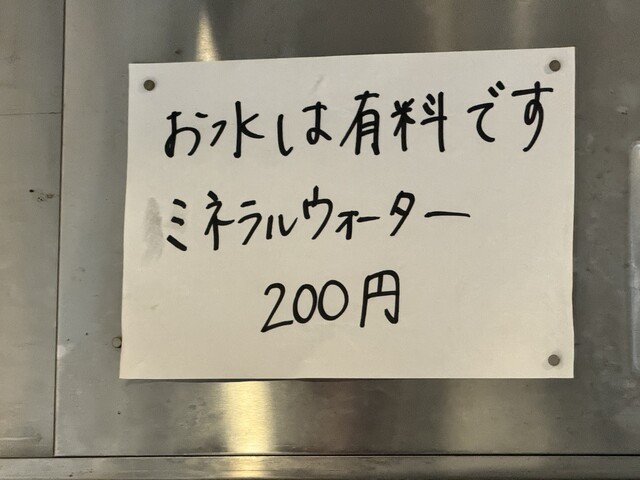 お水は有料です
ミネラルウォーター
200円